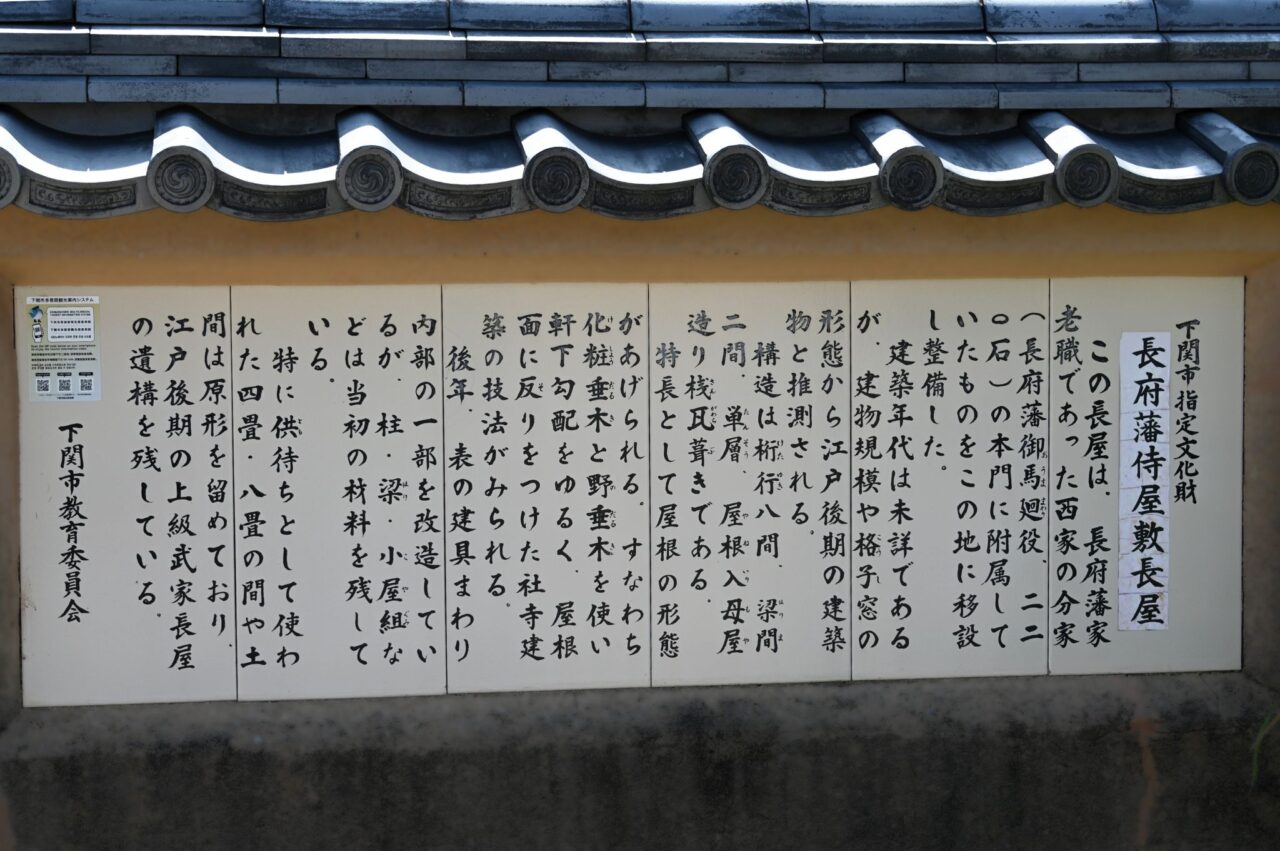 下関市指定文化財
長府藩侍屋敷長屋
この長屋は、長府藩家
老職であった西家の分家
（長府藩御馬廻役、二二
〇石）の本門に附属して
いたものをこの地に移設
し整備した。
建築年代は未詳である
が、建物規模や格子窓の
形態から江戸後期の建築
物と推測される。
構造は桁行八間、梁間
二間、単層、屋根入母屋
造り桟瓦葺きである。
特長として屋根の形態
があげられる。すなわち
化粧垂木と野垂木を使い
軒下勾配をゆるく、屋根
面に反りをつけた社寺建
築の技法がみられる。
後年、表の建具まわり
内部の一部を改造してい
るが、柱・梁・小屋組な
どは当初の材料を残して
いる。
特に供待ちとして使わ
れた四畳・八畳の間や土
間は原形を留めており、
江戸後期の上級武家長屋
の遺構を残している。
下関市教育委員会
下関市多言語観光案内システム